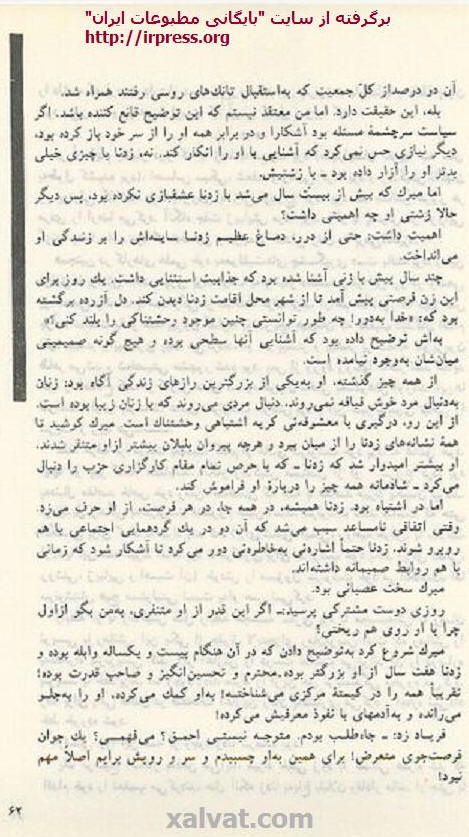 برگرفته از سایت "بایگانی مطبوعات ایران"
http://irpress.org
آن دو درصد از کلّ جمعیت که به‌استقبال تانك‌های روسی رفتند همراه شد.
بله، این حقیقت دارد. اما من معتقد نیستم که این توضیح قانع کننده باشد. اگر
سیاست سرچشمهٔ مسئله بود آشکارا و در برابر همه او را از سر خود باز کرده بود،
دیگر نیازی حس نمی‌کرد که آشنایی با او را انکار کند. نه، زدنا با چیزی خیلی
بدتر او را آزار داده بود ـ با زشتیش.
اما میرك که بیش از بیست سال می‌شد با زدنا عشقبازی نکرده بود، پس دیگر
حالا زشتی او چه اهمیتی داشت؟
اهمیت داشت. حتی از دور، دماغ عظیم زدنا سایه‌اش را بر زندگی او
می‌انداخت.
چند سال پیش با زنی آشنا شده بود که جذابیت استثنایی داشت. یك روز برای
این زن فرصتی پیش آمد تا از شهر محل اقامت زدنا دیدن کند. دل آزرده برگشته
بود که: «خدا به‌دور! چه طور توانستی چنین موجود وحشتناکی را بلند کنی!»
به‌اش توضیح داده بود که آشنایی آنها سطحی بوده و هیچ گونه صمیمیتی
میان‌شان به‌وجود نیامده است.
از همه چیز گذشته، او به‌یکی از بزرگترین رازهای زندگی آگاه بود: زنان
به‌دنبال مرد خوش قیافه نمی‌روند، دنبال مردی می‌روند که با زنان زیبا بوده است.
از این رو، درگیری با معشوقه‌ئی کریه اشتباهی وحشتناك است. میرك کوشید تا
همهٔ نشانه‌های زدنا را از میان ببرد و هرچه پیروان بلبلان بیشتر از او متنفر شدند،
او بیشتر امیدوار شد که زدنا ـ که با حرص تمام مقام کارگزاری حزب را دنبال
می‌کرد ـ شادمانه همه چیز را دربارهٔ او فراموش کند.
اما در اشتباه بود. زدنا همیشه، در همه جا، در هر فرصت، از او حرف می‌زد.
وقتی اتفاقی نامساعد سبب می‌شد که آن دو در یك گردهمایی اجتماعی با هم
روبرو شوند، زدنا حتماً اشاره‌ئی به‌خاطره‌ئی دور می‌کرد تا آشکار شود که زمانی
با هم روابط صمیمانه داشته‌اند.
میرك سخت عصبانی بود.
روزی دوست مشترکی پرسید: ـ اگر این قدر از او متنفری، به‌من بگو از اول
چرا با او روی هم ریختی؟
میرك شروع کرد به‌توضیح دادن که در آن هنگام بیست و یکساله و ابله بوده و
زدنا هفت سال از او بزرگتر بوده. محترم و تحسین‌انگیز و صاحب قدرت بوده!
تقریباً همه را در کمیتهٔ مرکزی می‌شناخته! به‌او کمك می‌کرده، او را به‌جلو
می‌رانده و به‌آدمهای با نفوذ معرفیش می‌کرده!
فریاد زد: ـ جاه‌طلب بودم. متوجه نیستی احمق؟ می‌فهمی؟ یك جوان
فرصت‌جوی متعرض! برای همین به‌او چسبیدم و سر و رویش برایم اصلاً مهم
نبود!
۶۲
xalvat.com